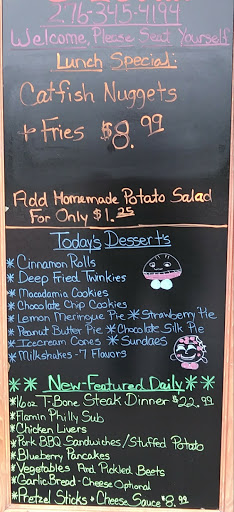 276-345-4194
Welcome, Please Seat Yourself
Lunch Special:
Catfish Nuggets
+ Fries $8.99
Add Homemade Potato Salad
For Only $1.25
Today's Desserts
* Cinnamon Rolls
* Deep Fried Twinkies
* Macadamia Cookies
* Chocolate Chip Cookies
* Lemon Meringue Pie * Strawberry Pie
* Peanut Butter Pie * Chocolate Silk Pie
* Icecream Cones * Sundaes
* Milkshakes - 7 Flavors
** New-Featured Daily **
*16oz T-Bone Steak Dinner $22.99
*Flamin Philly Sub
*Chicken Livers
*Pork BBQ Sandwiches/Stuffed Potato
*Blueberry Pancakes
*Vegetables And Pickled Beets
*Garlic Bread - Cheese Optional
*Pretzel Sticks + Cheese Sauce $8.99